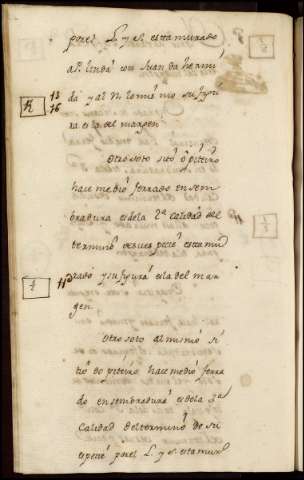 por el L. y el esta murado
al P. linda con Juan da hermi
da y al N. lo mismo su figu
ra es la del margen
13
76
Otro soto sito o piteiro
hace medio ferrado en sem
bradura es de la 2ª calidad del
termino de su especie esta mu
rado y su figura es la del mar
gen.
1/2
11
Otro soto al mismo si
tio do piteiro hace medio ferra
do en sembradura es de la 2ª
Calidad del termino de su
especie por el L. y el esta mur